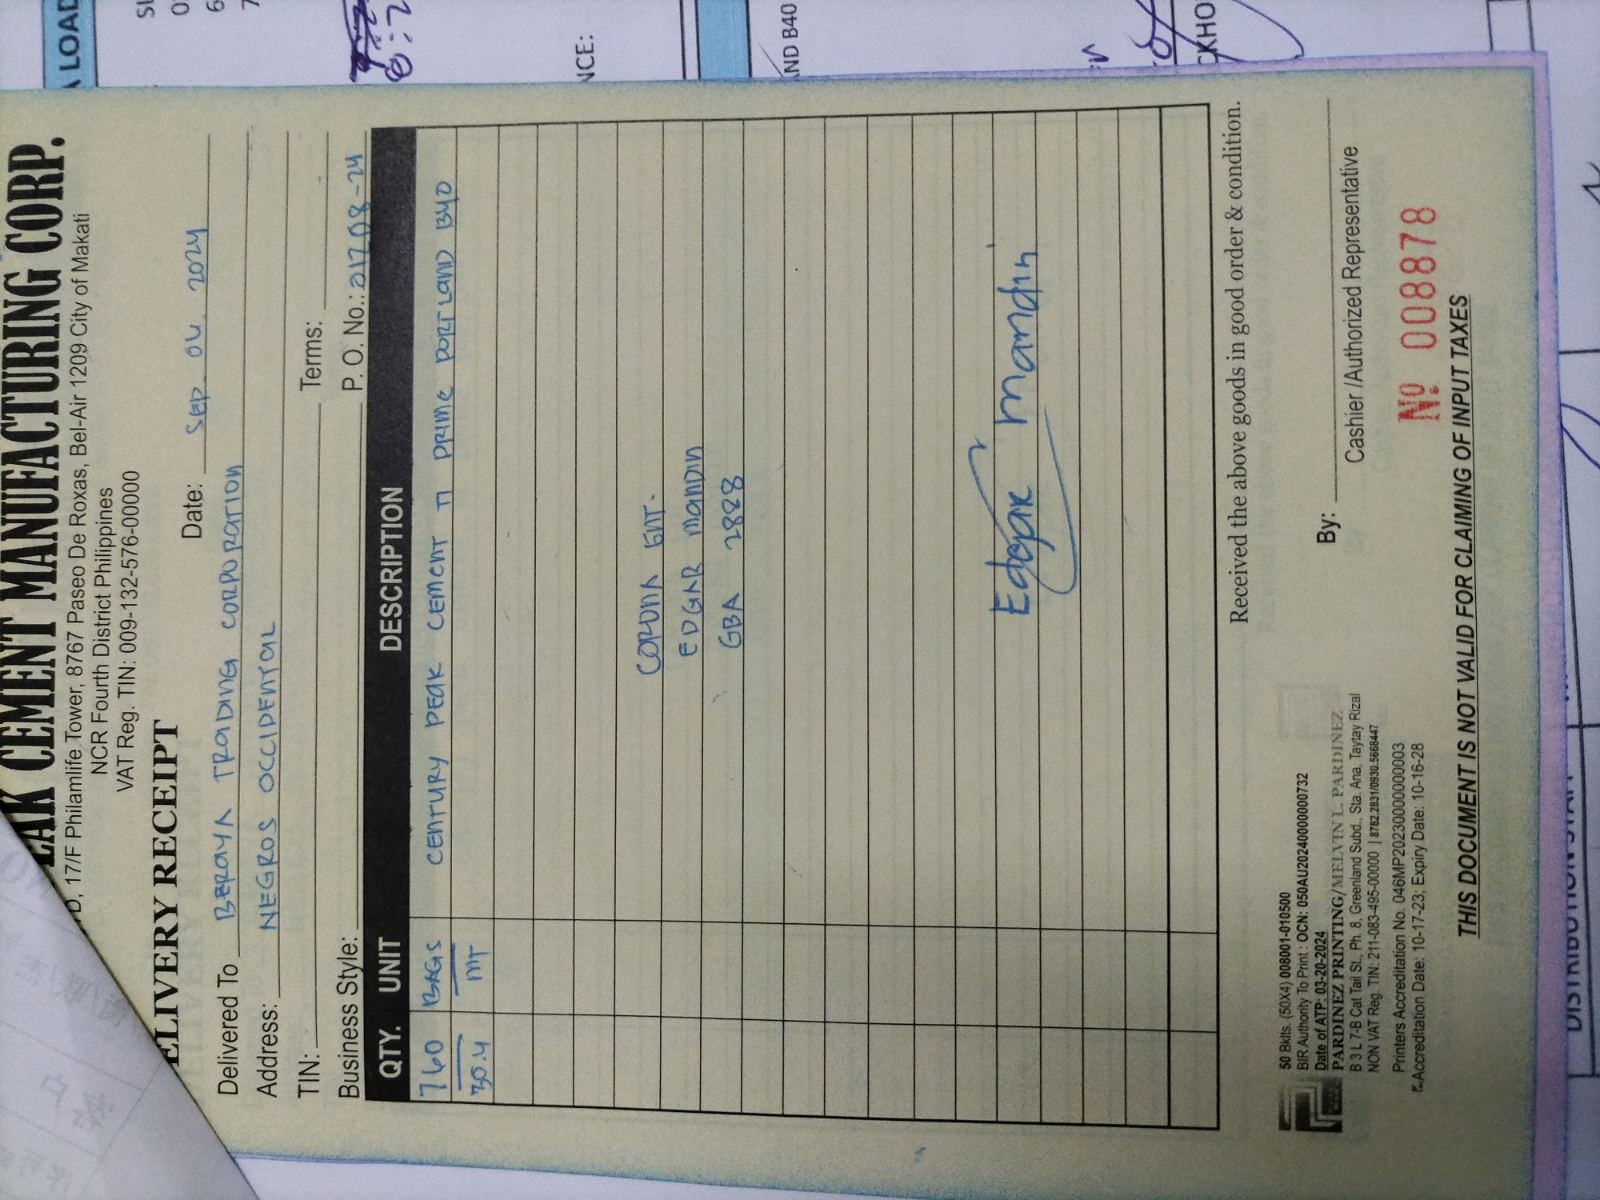 EAK CEMENT MANUFACTURING CORP.
D, 17/F Philamlife Tower, 8767 Paseo De Roxas, Bel-Air 1209 City of Makati
NCR Fourth District Philippines
VAT Reg. TIN: 009-132-576-00000
ELIVERY RECEIPT
Date: Sep. 04 2024
Delivered To BERAYA TRADING CORPORATION
Address: NEGROS OCCIDENTAL
TIN: Terms:
Business Style: P. O. No.: 01708-24
QTY. UNIT DESCRIPTION
760 BAGS CENTURY PEAK CEMENT PRIME PORTLAND B40
30.4 MT
CORONA ENT.
EDGAR MANDIN
GBA 2828
Edgar Mandin
Received the above goods in good order & condition.
By:
Cashier /Authorized Representative
50 Bklts. (50X4) 008001-010500
BIR Authority To Print : OCN: 050AU20240000000732
Date of ATP: 03-20-2024
PARDINEZ PRINTING/MELVIN L. PARDINEZ
B 3 L 7-B Cat Tail St., Ph. 8, Greenland Subd., Sta. Ana, Taytay Rizal
NON VAT Reg. TIN: 211-083-495-00000 | 8782.2831/0930.5668447
Printers Accreditation No. 046MP20230000000003
Accreditation Date: 10-17-23; Expiry Date: 10-16-28
No 008878
THIS DOCUMENT IS NOT VALID FOR CLAIMING OF INPUT TAXES
A LOAD
NCE:
ND B40
CKHO
DISTRIBUTION STAFF